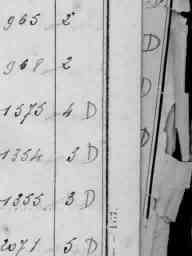 965 2
968 2
1575 4 D
1354 3 D
1355 3 D
2071 5 D
D
D
D